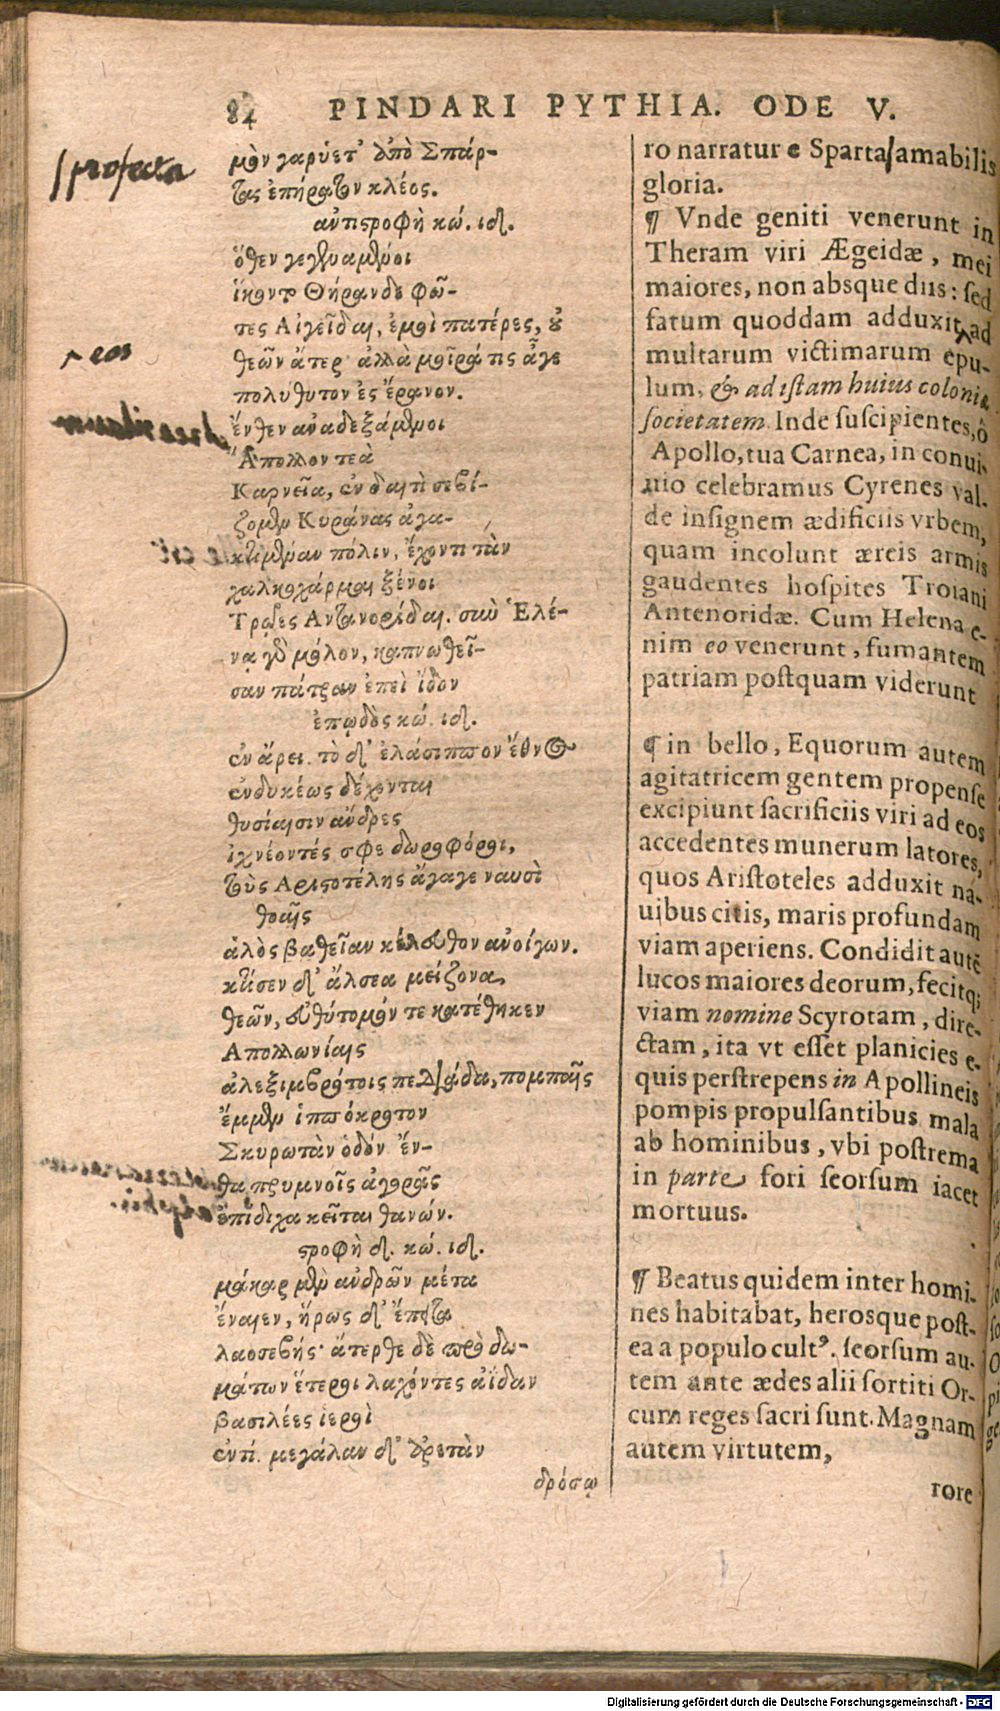 84 PINDARI PYTHIA. ODE V.
profecta
μὸν γαρύετ' ἀπὸ Σπάρ-
τας ἐπήρατον κλέος.
ἀντιστροφὴ κώ. ιδ.
ὅθεν γεγενναμένοι
ἵκοντο Θήρανδε φῶ-
τες Αἰγεῖδαι, ἐμοὶ πατέρες, οὐ
eos
θεῶν ἄτερ· ἀλλὰ μοῖρά τις ἆγε
πολύθυτον ἐς ἔρανον.
ἔνθεν ἀναδεξάμενοι
Ἄπολλον τεᾷ
Καρνεῖα, ἐν δαιτὶ σεβί-
ζομεν Κυράνας ἀγα-
κτιμέναν πόλιν, ἔχοντι τὰν
χαλκοχάρμαι ξένοι
Τρῶες Ἀντανορίδαι. σὺν Ἑλέ-
νᾳ γὰρ μόλον, καπνωθεῖ-
σαν πάτραν ἐπεὶ ἴδον
ἐπῳδὸς κώ. ιδ.
ἐν ἄρει. τὸ δ' ἐλάσιππον ἔθνος
ἐνδυκέως δέχονται
θυσίαισιν ἄνδρες
ἰχνέοντές σφε δωροφόροι,
τοὺς Ἀριστοτέλης ἄγαγε ναυσὶ
θοαῖς
ἁλὸς βαθεῖαν κέλευθον ἀνοίγων.
κτίσεν δ' ἄλσεα μείζονα
θεῶν, εὐθύτομόν τε κατέθηκεν
Ἀπολλωνίαις
ἀλεξιμβρότοις πεδιάδα, πομπαῖς
ἔμμεν ἱππόκροτον
Σκυρωτὰν ὁδόν ἔν-
θα πρυμνοῖς ἀγορᾶς
ἐπίδιχα κεῖται θανών.
στροφὴ δ. κώ. ιδ.
μάκαρ μὲν ἀνδρῶν μέτα
ἔναιεν, ἥρως δ' ἔπειτα
λαοσεβής· ἄτερθε δὲ πρὸ δω-
μάτων ἕτεροι λαχόντες ἀΐδαν
βασιλέες ἱεροὶ
ἐντί. μεγάλαν δ' ἀρετὰν
δρόσῳ
ro narratur e Sparta amabilis
gloria.
¶ Vnde geniti venerunt in
Theram viri Ægeidæ, mei
maiores, non absque diis: sed
fatum quoddam adduxit ad
multarum victimarum epu-
lum, & ad istam huius coloniæ
societatem. Inde suscipientes, ô
Apollo, tua Carnea, in conui-
uio celebramus Cyrenes val-
de insignem ædificiis vrbem,
quam incolunt æreis armis
gaudentes hospites Troiani
Antenoridæ. Cum Helena e-
nim eo venerunt, fumantem
patriam postquam viderunt
¶ in bello, Equorum autem
agitatricem gentem propense
excipiunt sacrificiis viri ad eos
accedentes munerum latores,
quos Aristoteles adduxit na-
uibus citis, maris profundam
viam aperiens. Condidit autē
lucos maiores deorum, fecitq;
viam nomine Scyrotam, dire-
ctam, ita vt esset planicies e-
quis perstrepens in Apollineis
pompis propulsantibus mala
ab hominibus, vbi postrema
in parte fori seorsum iacet
mortuus.
¶ Beatus quidem inter homi-
nes habitabat, herosque post-
ea a populo cultꝰ. seorsum au-
tem ante ædes alii sortiti Or-
cum reges sacri sunt. Magnam
autem virtutem,
rore
Digitalisierung gefördert durch die Deutsche Forschungsgemeinschaft - DFG